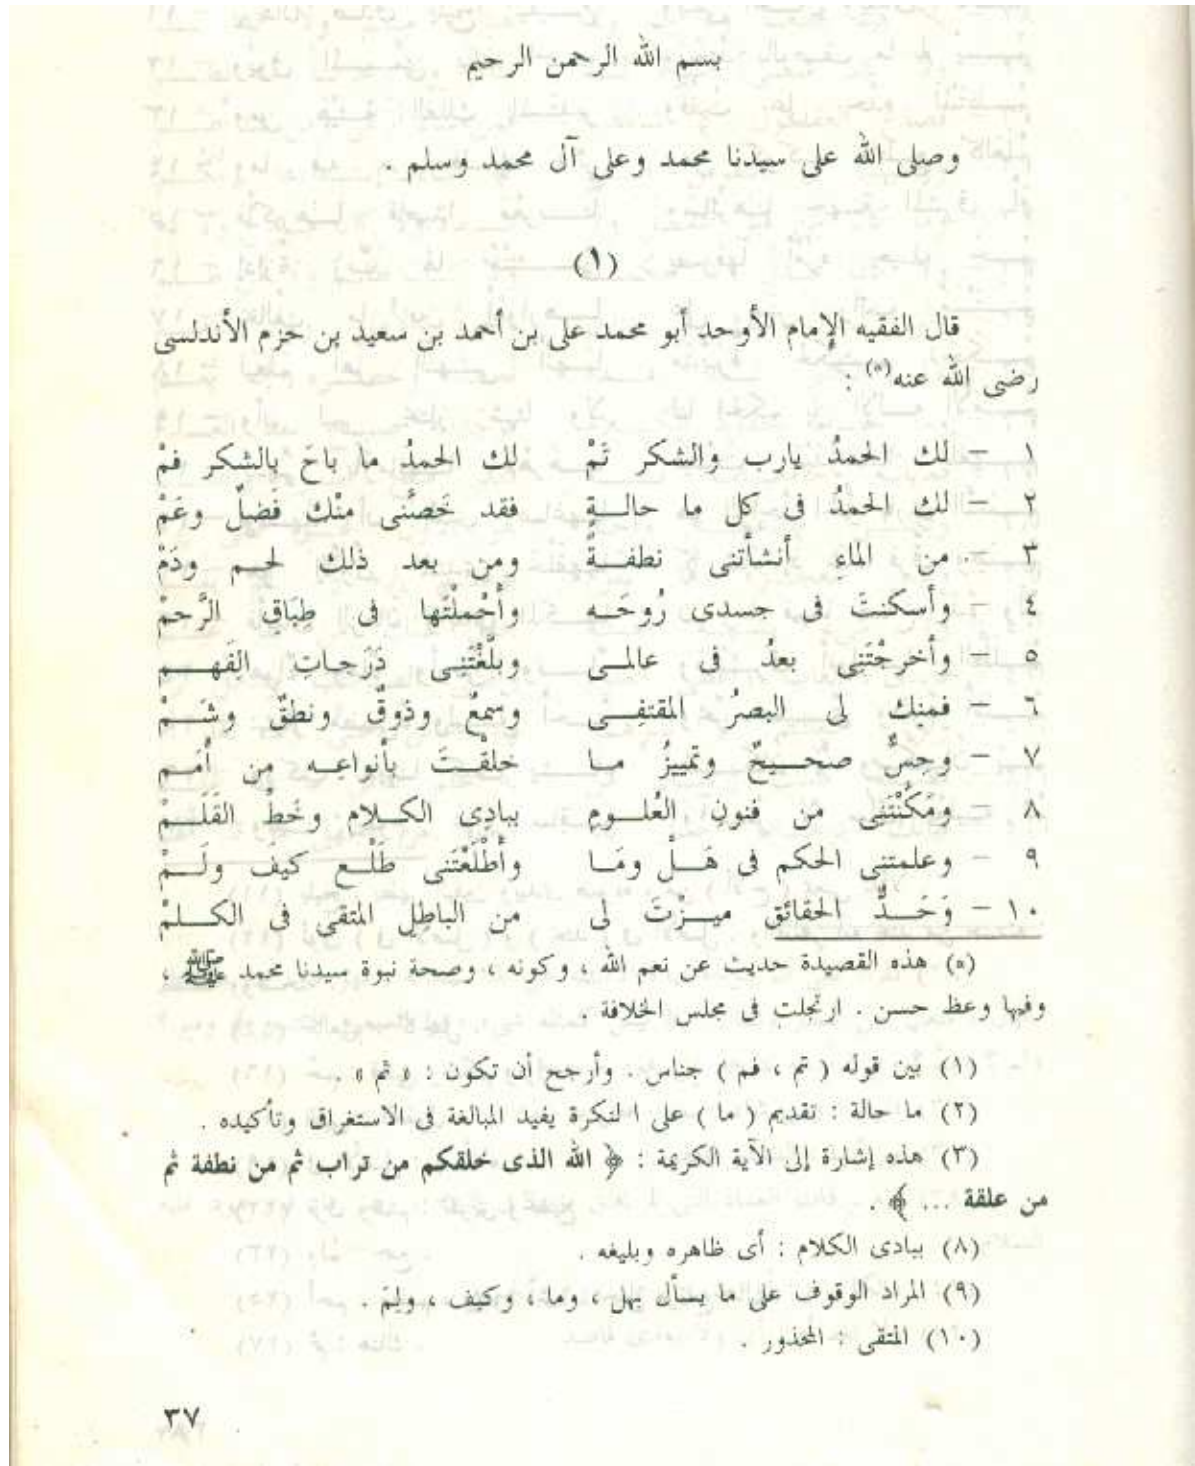 بسم الله الرحمن الرحيم
وصلى الله على سيدنا محمد وعلى آل محمد وسلم .
(١)
قال الفقيه الإمام الأوحد أبو محمد على بن أحمد بن سعيد بن حزم الأندلسى
رضى الله عنه(*) :
١ - لك الحمدُ يارب والشكر تَمْ لك الحمدُ ما باحَ بالشكر فمْ
٢ - لك الحمدُ فى كل ما حالـــةٍ فقد خَصَّنى منْك فَضلٌ وعَمْ
٣ - من الماءِ أنشأتنى نطفـــةً ومن بعد ذلك لحــم ودَمْ
٤ - وأسكنتَ فى جسدى رُوحَــه وأحْملْتَها فى طِبَاقِ الرَّحمْ
٥ - وأخرجْتَنِى بعدُ فى عالمــى وبلَّغْتَنِــى دَرَجــاتِ الفَهــم
٦ - فمنك لى البصرُ المقتفِــى وسمعٌ وذوقٌ ونطقٌ وشَـــمْ
٧ - وحِسٌّ صحـــيحٌ وتمييزُ مــا خلقْــتَ بأنواعِــه من أُمَــم
٨ - ومَكَّنْتَنِى من فنونِ العُلــومِ ببادِى الكــلام وخَطِّ القَلَـــمْ
٩ - وعلمتنى الحكم فى هَــلْ ومَــا وأطْلَعْتَنى طَلْــع كيفَ ولَـــمْ
١٠ - وَحَـــدَّ الحقائق ميــزْتَ لى من الباطِل المتقى فى الكــلمْ
(*) هذه القصيدة حديث عن نعم الله ، وكونه ، وصحة نبوة سيدنا محمد ﷺ ،
وفيها وعظ حسن . ارتجلت فى مجلس الخلافة .
(١) بين قوله ( تم ، فم ) جناس . وأرجح أن تكون : « ثم » .
(٢) ما حالة : تقديم ( ما ) على النكرة يفيد المبالغة فى الاستغراق وتأكيده .
(٣) هذه إشارة إلى الآية الكريمة : ﴿ الله الذى خلقكم من تراب ثم من نطفة ثم
من علقة ... ﴾ .
(٨) ببادى الكلام : أى ظاهره وبليغه .
(٩) المراد الوقوف على ما يسأل بهل ، وما ، وكيف ، ولِمَ .
(١٠) المتقى : المحذور .
٣٧